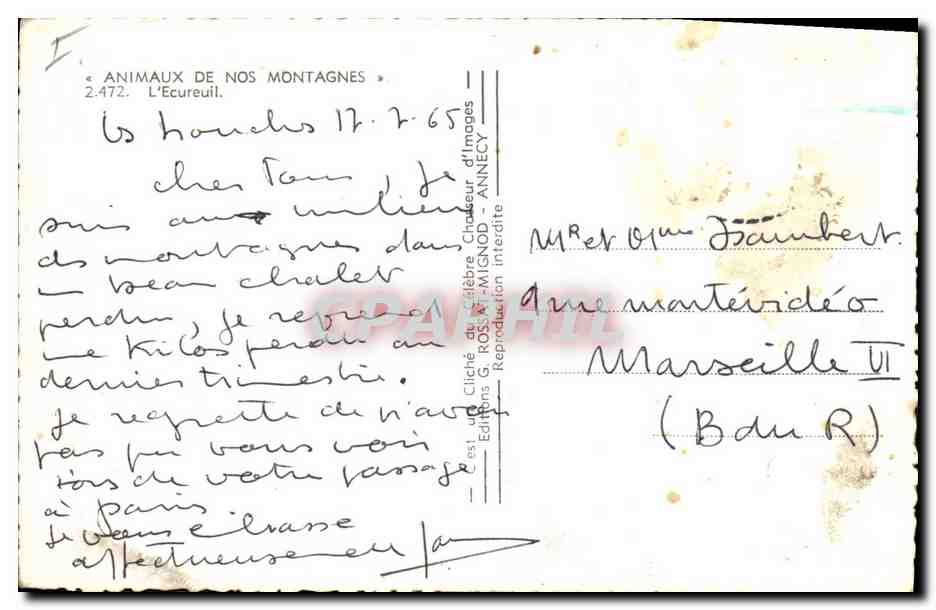 I
« ANIMAUX DE NOS MONTAGNES »
2.472. L'Ecureuil.
Les Houches 17.7.65
Chers Tous, je
suis au milieu
des montagnes dans
un beau chalet
perdu, je reprend
me kilos perdu au
dernier trimestre.
Je regrette de n'avoir
pas pu vous voir
lors de votre passage
à Paris
Je vous embrasse
affectueusement
C'est un Cliché du Célèbre Chasseur d'Images
Editions G. ROSSAT-MIGNOD - ANNECY
Reproduction interdite
CPAPHIL
Mr et Mme Isambert
9 rue montévidéo
Marseille VI
(B du R)